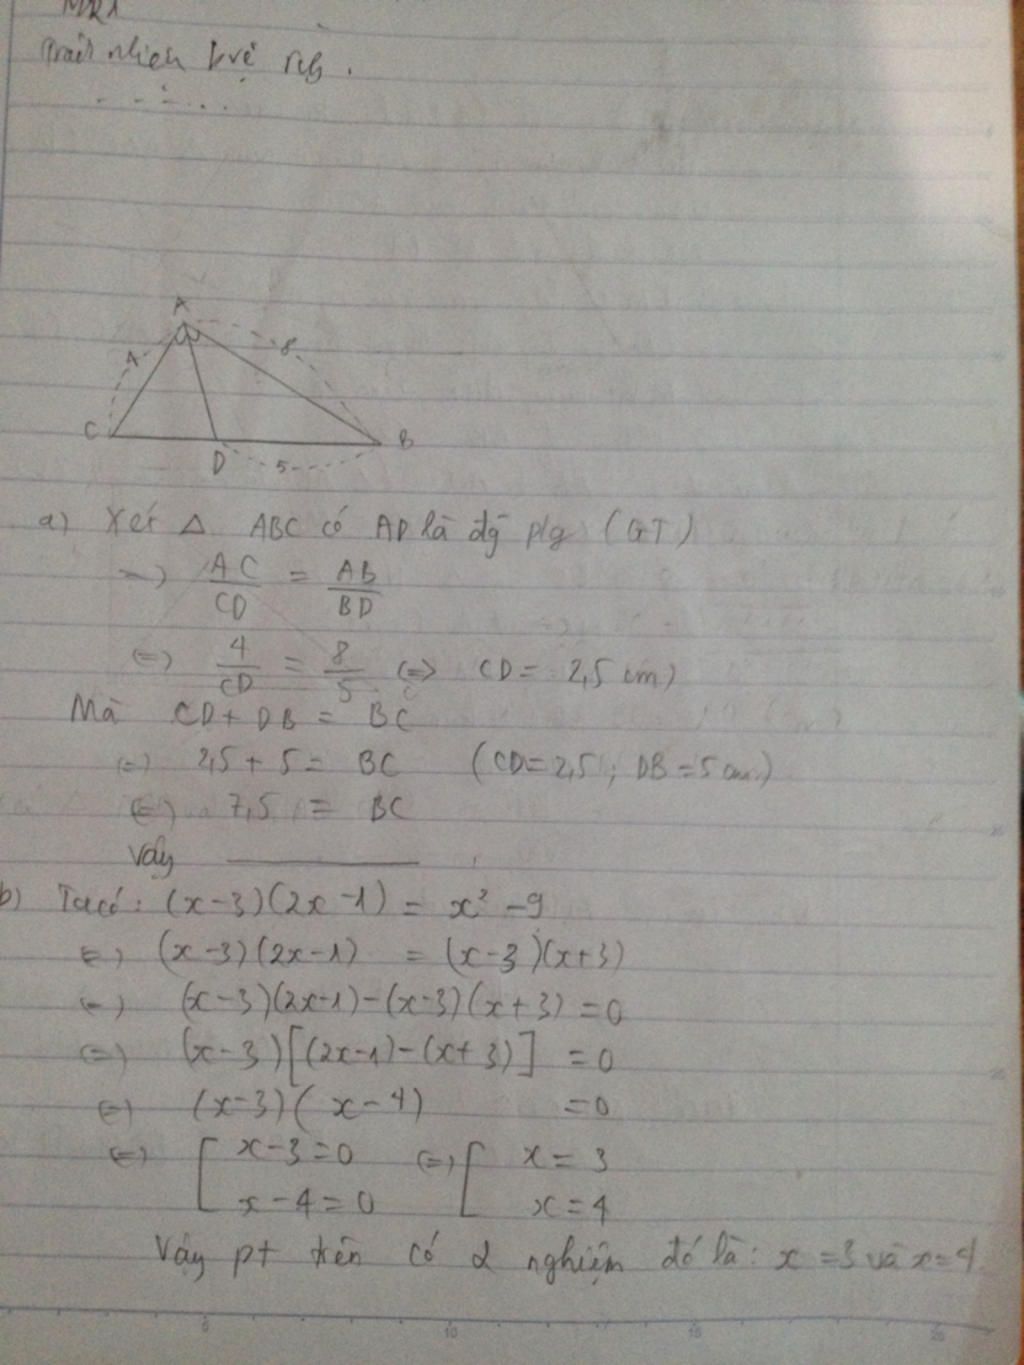 A
4
8
C
B
D
5
a) Xét △ ABC có AD là đg plg (GT)
=> AC/CD = AB/BD
<=> 4/CD = 8/5 <=> CD = 2,5 cm)
Mà CD + DB = BC
<=> 2,5 + 5 = BC (CD = 2,5 ; DB = 5 cm)
<=> 7,5 = BC
Vậy
b) Ta có: (x-3)(2x-1) = x² - 9
<=> (x-3)(2x-1) = (x-3)(x+3)
<=> (x-3)(2x-1)-(x-3)(x+3) = 0
<=> (x-3)[(2x-1)-(x+3)] = 0
<=> (x-3)(x-4) = 0
<=> [ x-3=0 <=> [ x = 3
x-4=0 x = 4
Vậy pt trên có 2 nghiệm đó là: x = 3 và x = 4
5
10
15
20